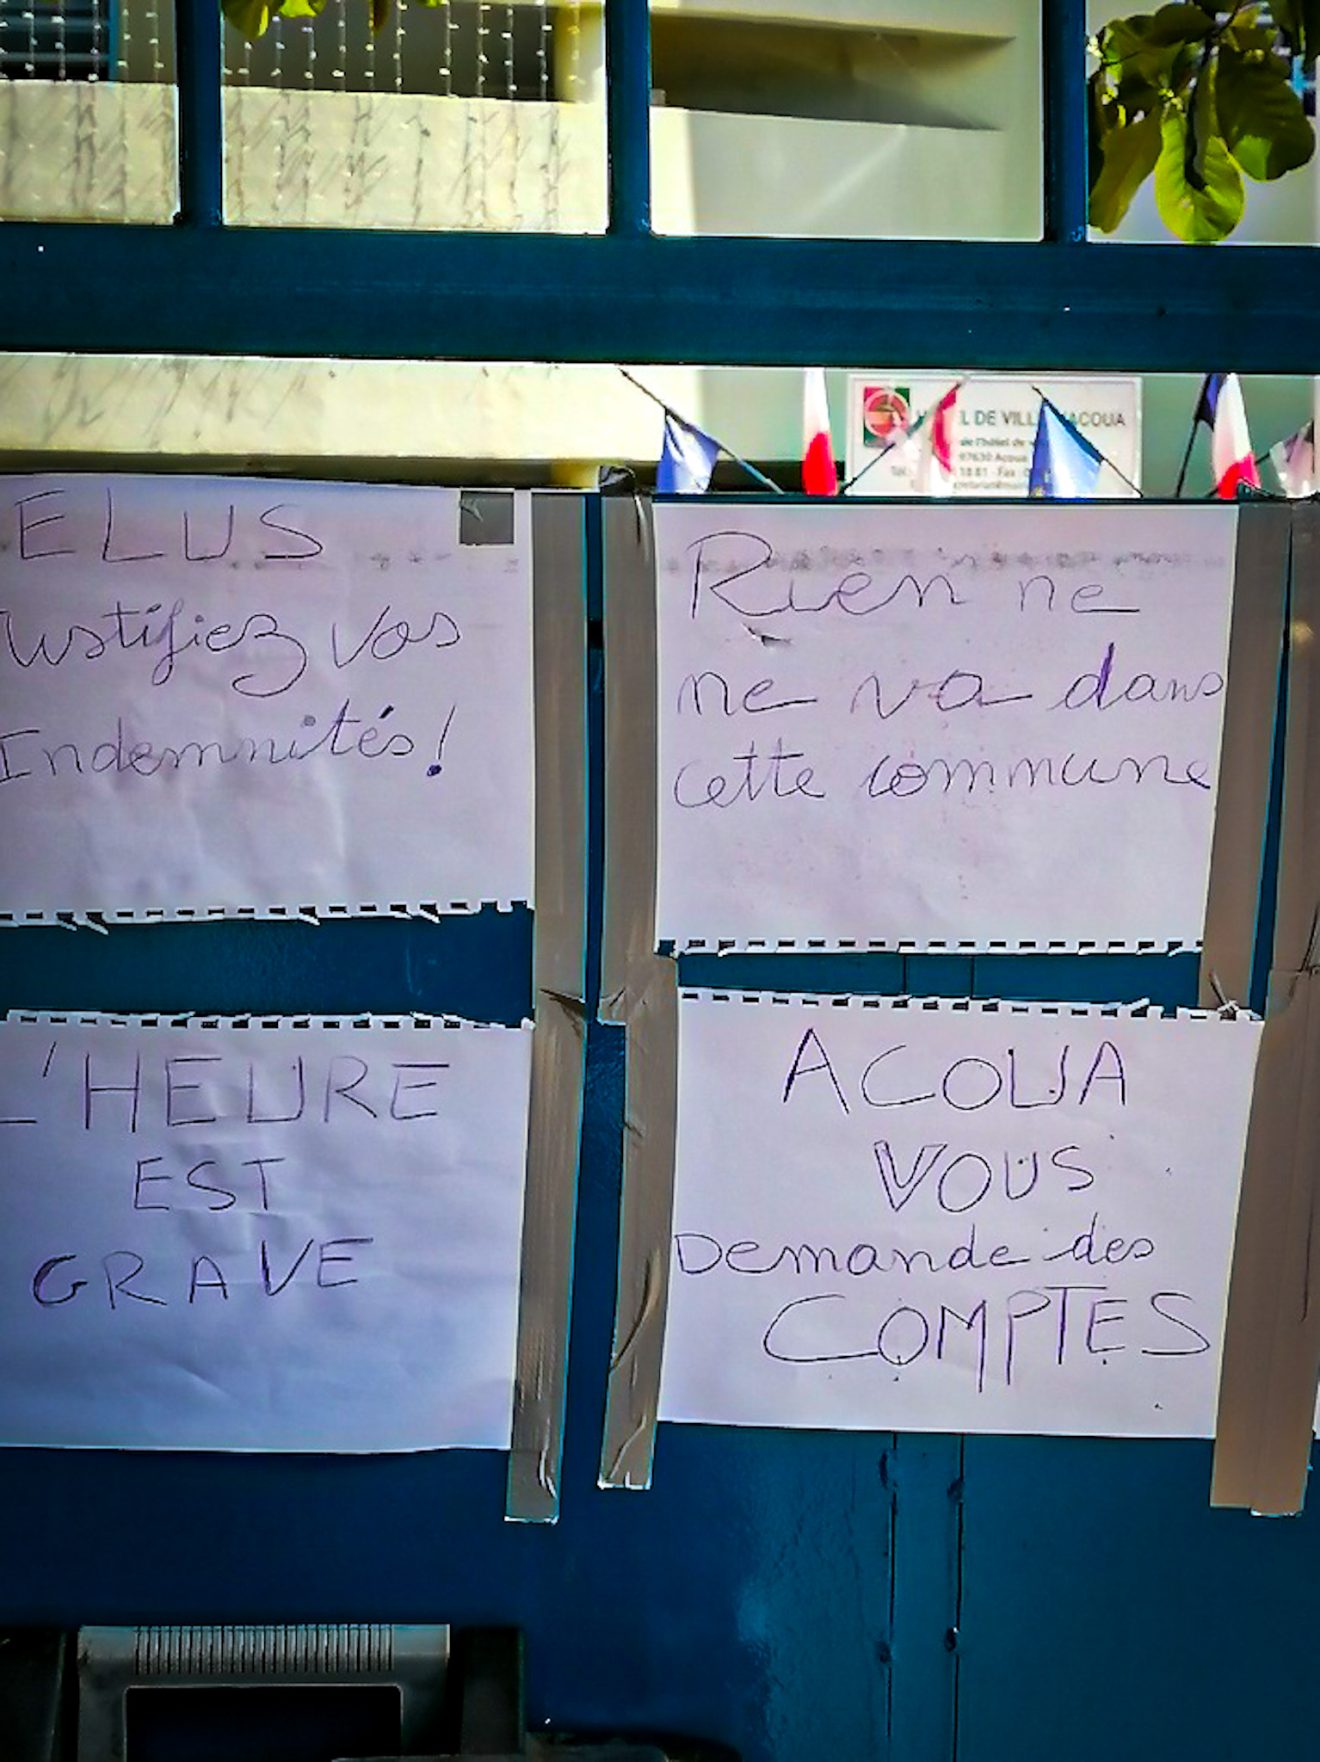 HOTEL DE VILLE ACOUA
de l'hôtel de
97630 Acoua
Tél. 18 81 - Fax : 0
ELUS
Justifiez vos
Indemnités!
Rien ne
ne va dans
cette commune
L'HEURE
EST
GRAVE
ACOUA
VOUS
Demande des
COMPTES